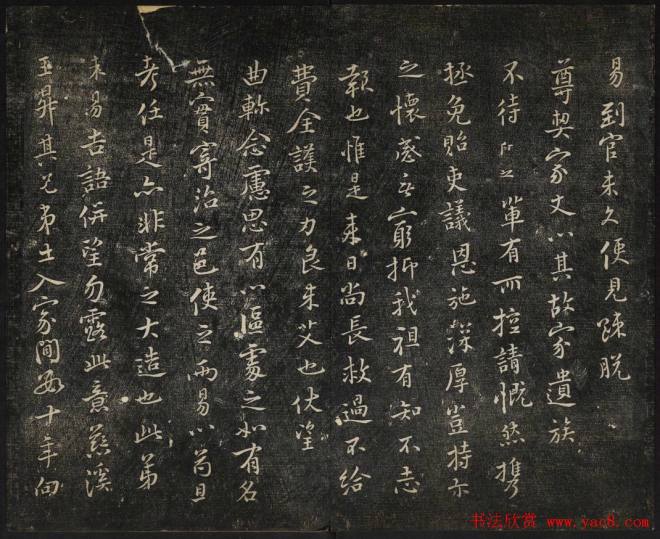 易到官未久便見踈脫
尊契家丈以其故家遺族
不待 之輩有所控請慨然攜
拯免貽吏議恩施深厚豈特尔
之懷感无窮抑我祖有知不忘
報也惟是来日尚長救過不給
費全護之力良未艾也伏望
曲軫念慮思有以區處之如有名
無實寄治之邑使之兩易以苟且
考任是亦非常之大造也此弟
未易告語併望勿露此意慈溪
王昇其兄弟士人家閒 十年向
书法欣赏 www.yac8.com